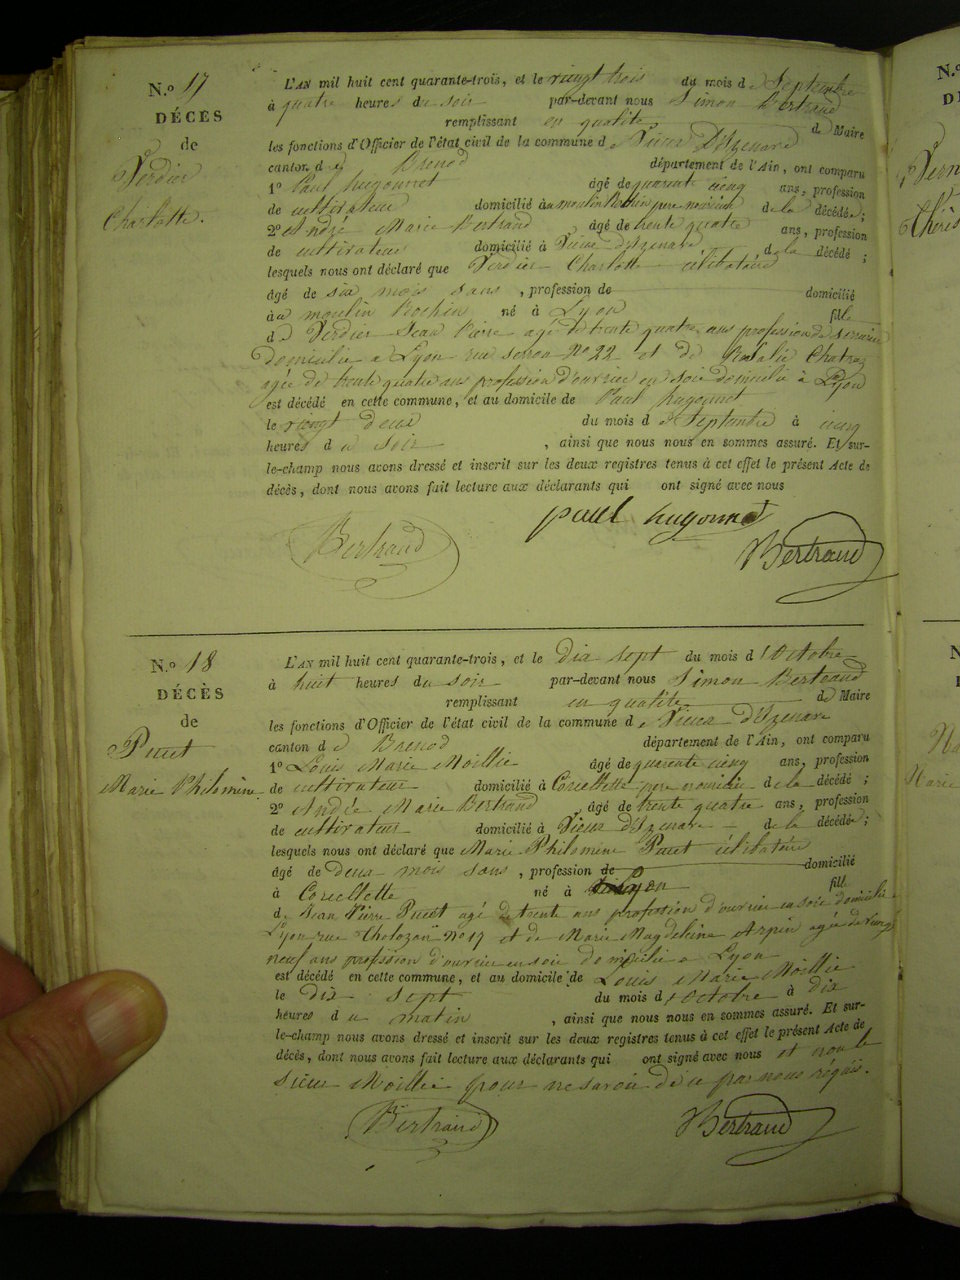 N.o 17
DÉCÈS
de
Verdier
Charlotte.
L'AN mil huit cent quarante-trois, et le vingt trois du mois de Septembre
à quatre heures du soir par-devant nous Simon Bertrand
remplissant en qualité de Maire
les fonctions d'Officier de l'état civil de la commune d Vieux D'Izenave
canton de Brenod département de l'Ain, ont comparu
1o Paul hugonnet âgé de quarante cinq ans, profession
de cultivateur domicilié au moulin Rochin père nouricier de la décédée;
2o André Marie Bertrand âgé de trente quatre ans, profession
de cultivateur domicilié à Vieux d'Izenave de la décédé;
lesquels nous ont déclaré que Verdier Charlotte célibataire
âgé de six mois sans, profession de domicilié
au moulin Rochin né à Lyon fille
de Verdier Jean Pierre agé de trente quatre ans profession de
domicilié à Lyon rue No 22 et de Rosalie
agée de trente quatre ans profession d'ouvrière en soie domicilié à Lyon
est décédé en cette commune, et au domicile de Paul hugonnet
le vingt deux du mois de Septembre à cinq
heures du soir, ainsi que nous nous en sommes assuré. Et sur-
le-champ nous avons dressé et inscrit sur les deux registres tenus à cet effet le présent Acte de
décès, dont nous avons fait lecture aux déclarants qui ont signé avec nous
paul hugonnet
Bertrand Bertrand
N.o 18
DÉCÈS
de
Pucet
Marie Philomène
L'AN mil huit cent quarante-trois, et le dix sept du mois d'Octobre
à huit heures du soir par-devant nous Simon Bertrand
remplissant en qualité de Maire
les fonctions d'Officier de l'état civil de la commune de Vieux d'Izenave
canton de Brenod département de l'Ain, ont comparu
1o Louis Marie Moillie âgé de quarante cinq ans, profession
de cultivateur domicilié à Corcellette père nouricier de la décédé;
2o André Marie Bertrand âgé de trente quatre ans, profession
de cultivateur domicilié à Vieux d'Izenave de la décédée;
lesquels nous ont déclaré que Marie Philomène Pucet célibataire
âgé de deux mois sans, profession de domicilié
à Corcellette né à Lyon fille
de Jean Pierre Pucet agé de trente ans profession d'ouvrier en soie domicilié à
Lyon rue No 17 et de Marie Magdeleine Arpin agée de vingt
neuf ans profession d'ouvrière en soie domicilié à Lyon
est décédé en cette commune, et au domicile de Louis Marie Moillie
le dix sept du mois d'Octobre à dix
heures du matin, ainsi que nous nous en sommes assuré. Et sur-
le-champ nous avons dressé et inscrit sur les deux registres tenus à cet effet le présent Acte de
décès, dont nous avons fait lecture aux déclarants qui ont signé avec nous et non le
sieur Moillie pour ne savoir de ce par nous réquis.
Bertrand Bertrand